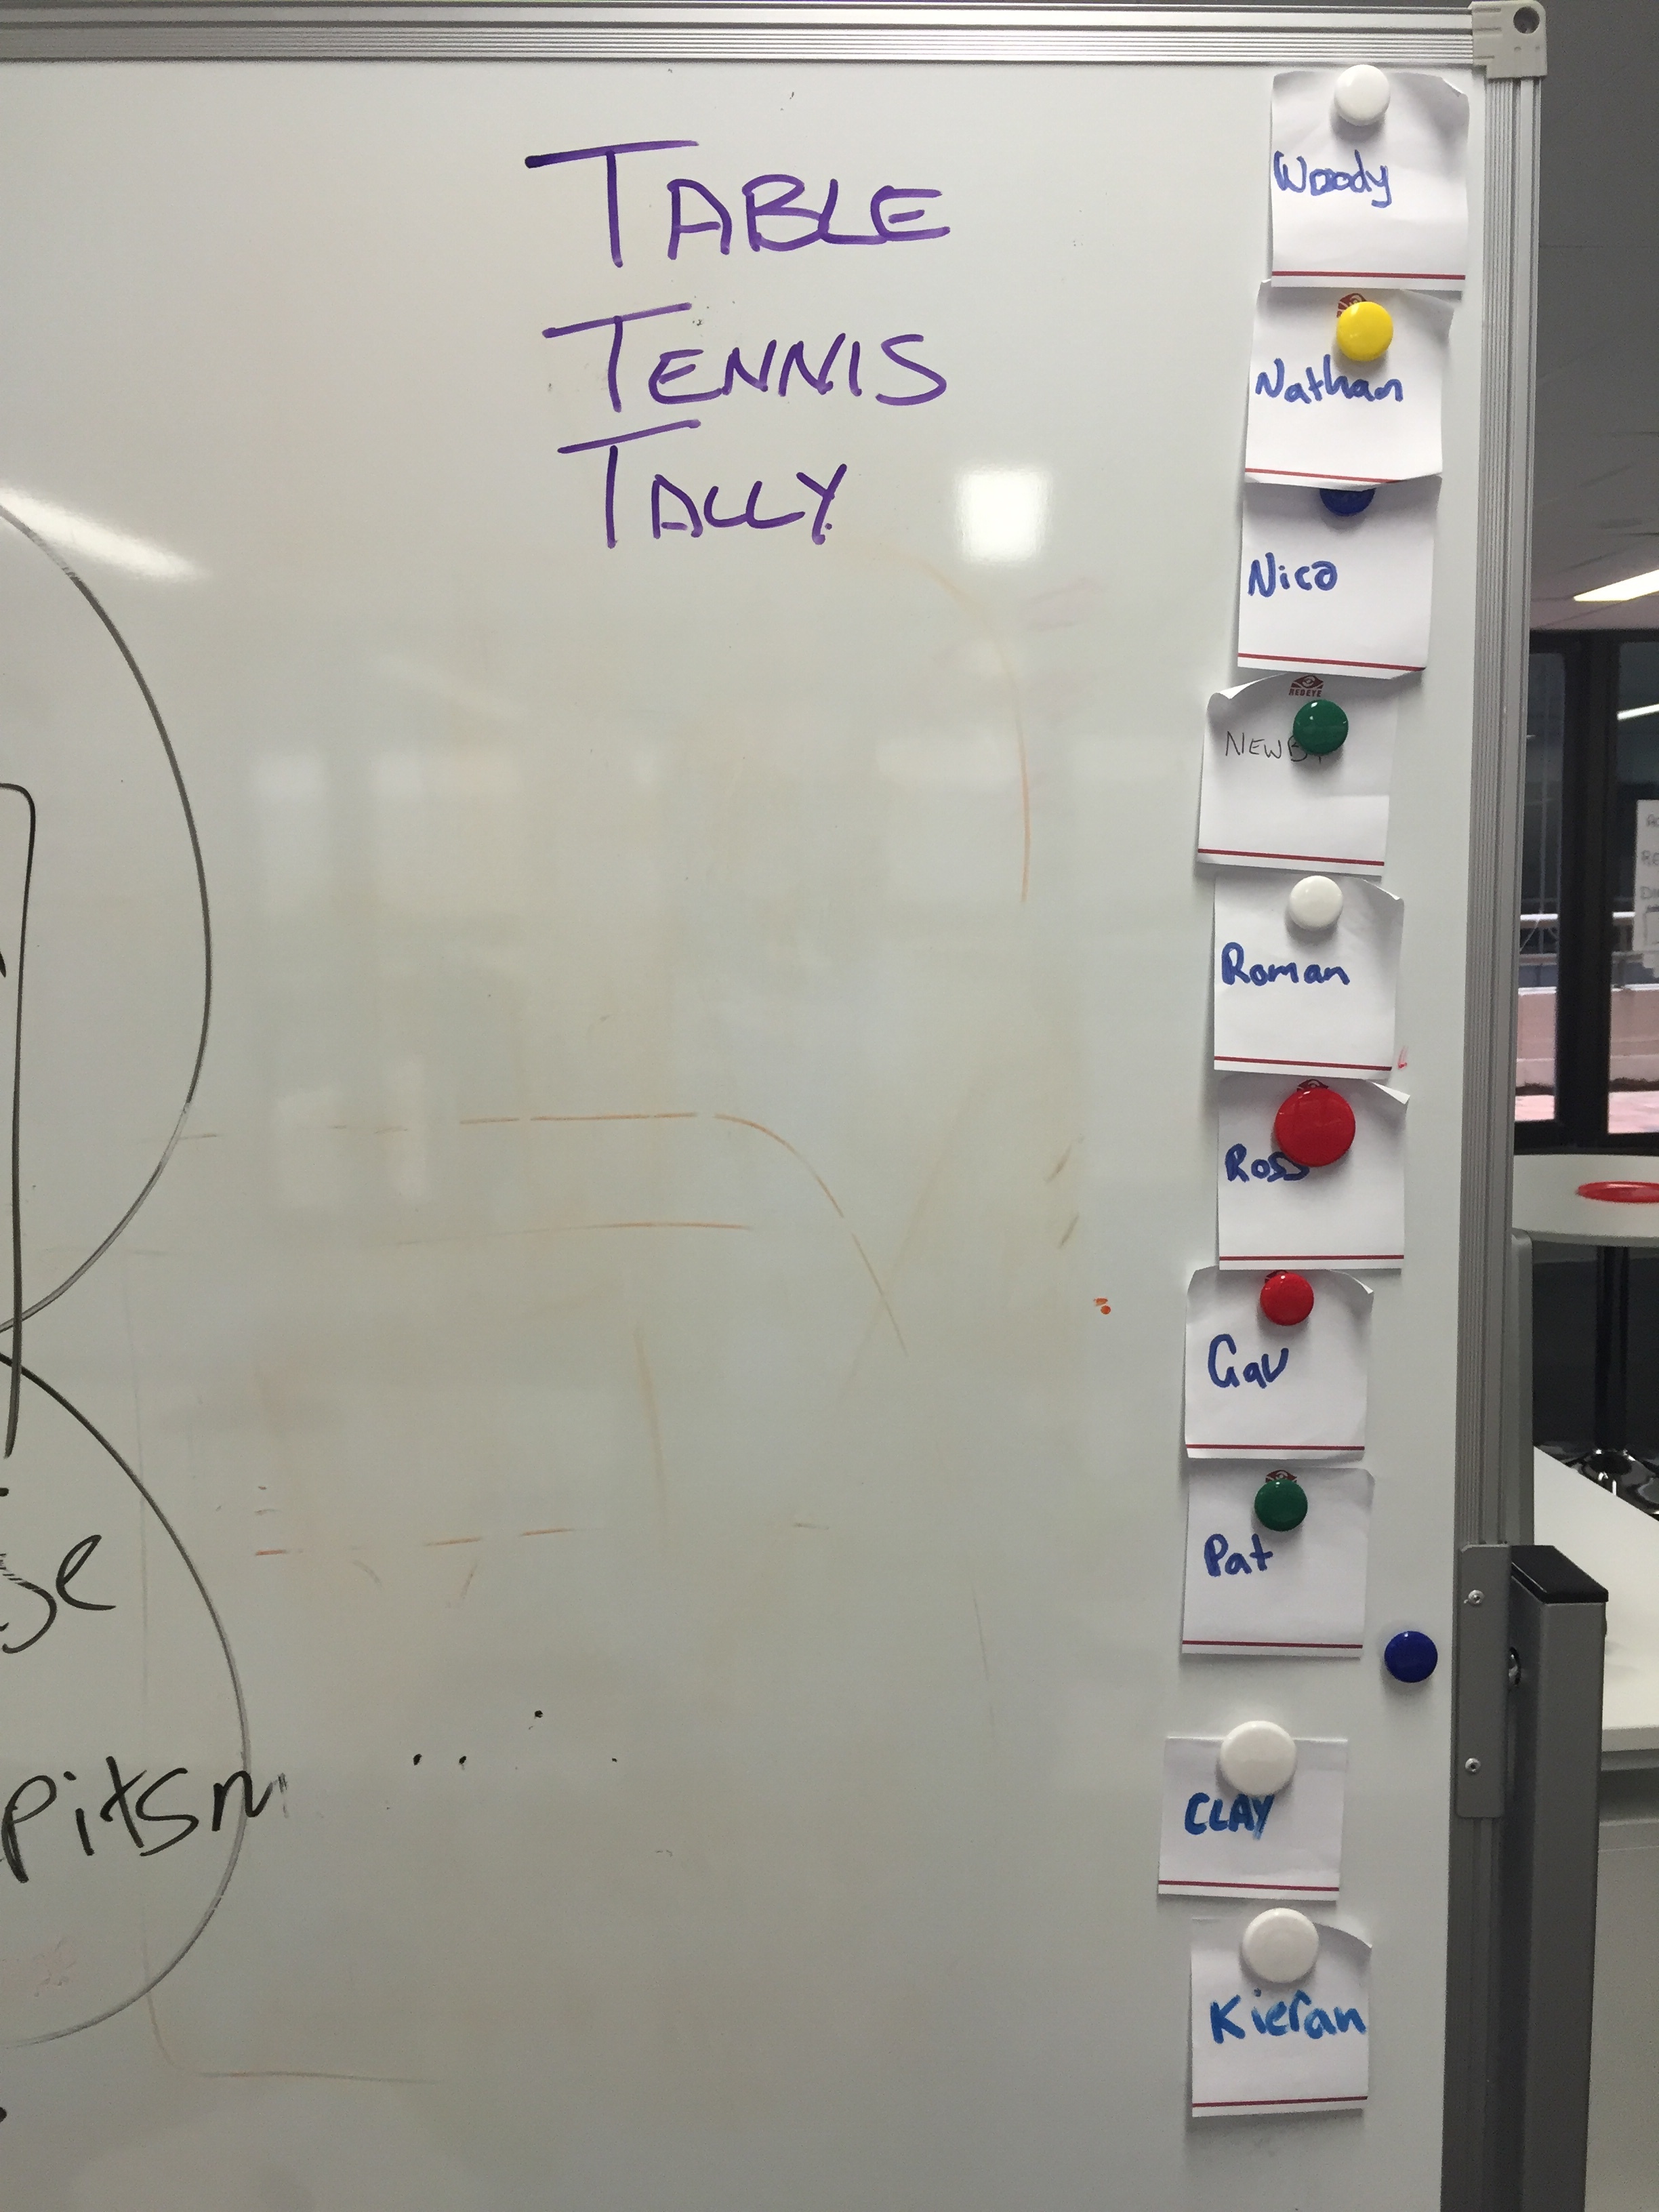 TABLE
TENNIS
TALLY
Woody
Nathan
Nico
REDEYE
Roman
Ross
Gav
Pat
CLAY
Kieran